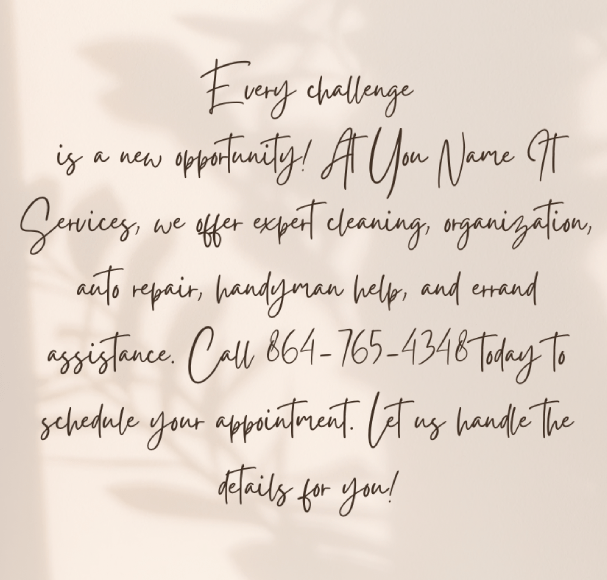 Every challenge
is a new opportunity! At You Name It
Services, we offer expert cleaning, organization,
auto repair, handyman help, and errand
assistance. Call 864-765-4348 today to
schedule your appointment. Let us handle the
details for you!